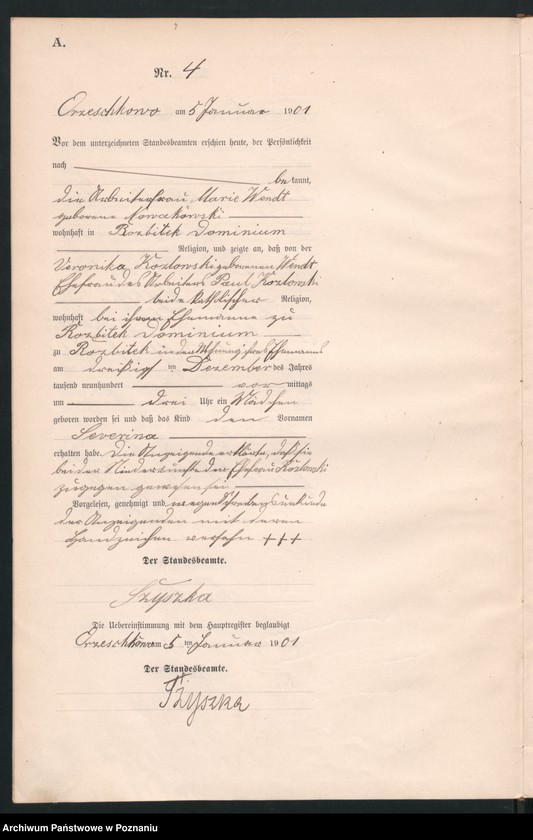 A.
Nr. 4
Orzeschkowo am 5 Januar 1901
Vor dem unterzeichneten Standesbeamten erschien heute, der Persönlichkeit
nach
bekannt,
die Arbeiterfrau Marie Wendt
geborene Nowakowski
wohnhaft in Rozbitek Dominium
Religion, und zeigte an, daß von der
Veronika Kozlowski geborenen Wendt
Ehefrau des Arbeiters Paul Kozlowski
beide katholischer Religion,
wohnhaft bei ihrem Ehemanne zu
Rozbitek Dominium
zu Rozbitek in der Wohnung ihres Ehemanns
am dreißigsten Dezember des Jahres
tausend neunhundert vor mittags
um drei Uhr ein Mädchen
geboren worden sei und daß das Kind den Vornamen
Severina
erhalten habe. Die Anzeigende erklärte, daß sie
bei der Niederkunft der Ehefrau Kozlowski
zugegen gewesen sei
Vorgelesen, genehmigt und wegen Schreibensunkunde
der Anzeigenden mit deren
Handzeichen versehen +++
Der Standesbeamte.
Szyszka
Die Uebereinstimmung mit dem Hauptregister beglaubigt
Orzeschkowo am 5 ten Januar 1901
Der Standesbeamte.
Szyszka
Archiwum Państwowe w Poznaniu